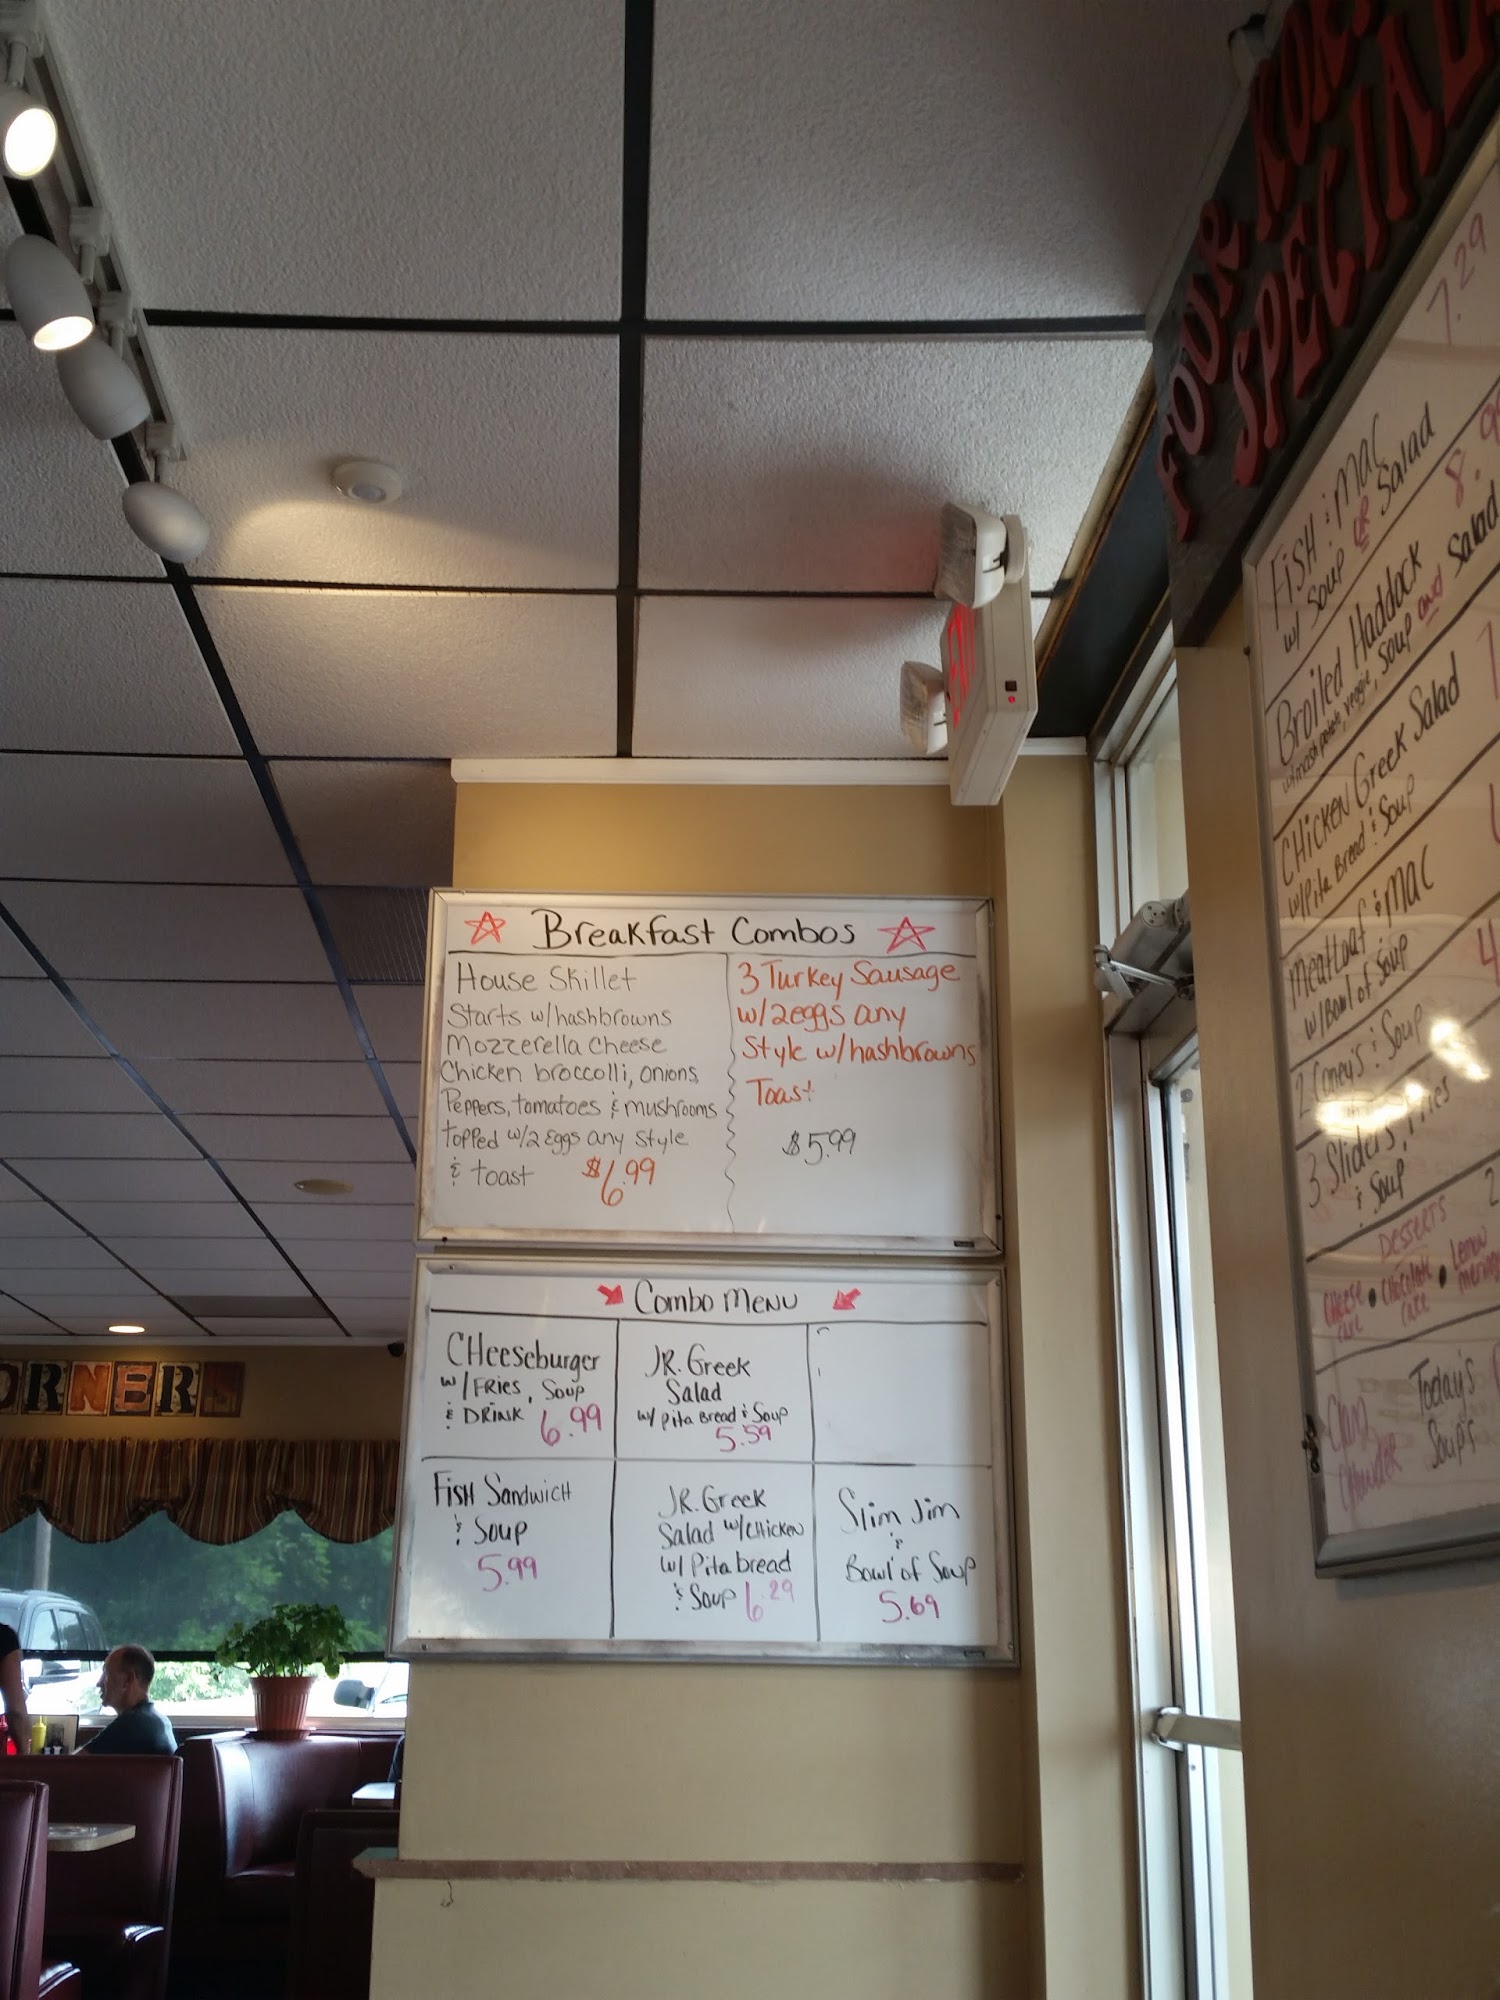 FOUR
SPECIAL
7.29
FISH & MAC
w/ Soup OR Salad
8.9
Broiled Haddock
w/mash potato, veggie, Soup and Salad
CHICKEN Greek Salad
w/Pita Bread & Soup
Meatloaf & MAC
w/Bowl of Soup
2 Coney's & Soup
3 Sliders, Fries
& Soup
DESSERTS
CHEESE CAKE • CHOCOLATE CAKE • Lemon
Today's
Soup's
Clam
Chowder
Breakfast Combos
House Skillet
Starts w/hashbrowns
Mozzerella Cheese
Chicken broccolli, onions,
Peppers, tomatoes & mushrooms
topped w/2 Eggs any style
& toast $6.99
3 Turkey Sausage
w/2eggs any
Style w/hashbrowns
Toast
$5.99
Combo MENU
CHeeseburger
w/FRies, Soup
& DRINK 6.99
JR. Greek
Salad
w/ pita Bread & Soup
5.59
FISH Sandwich
& Soup
5.99
JR. Greek
Salad w/CHicken
w/ Pita bread
& Soup 6.29
Slim Jim
&
Bowl of Soup
5.69
ORNERS